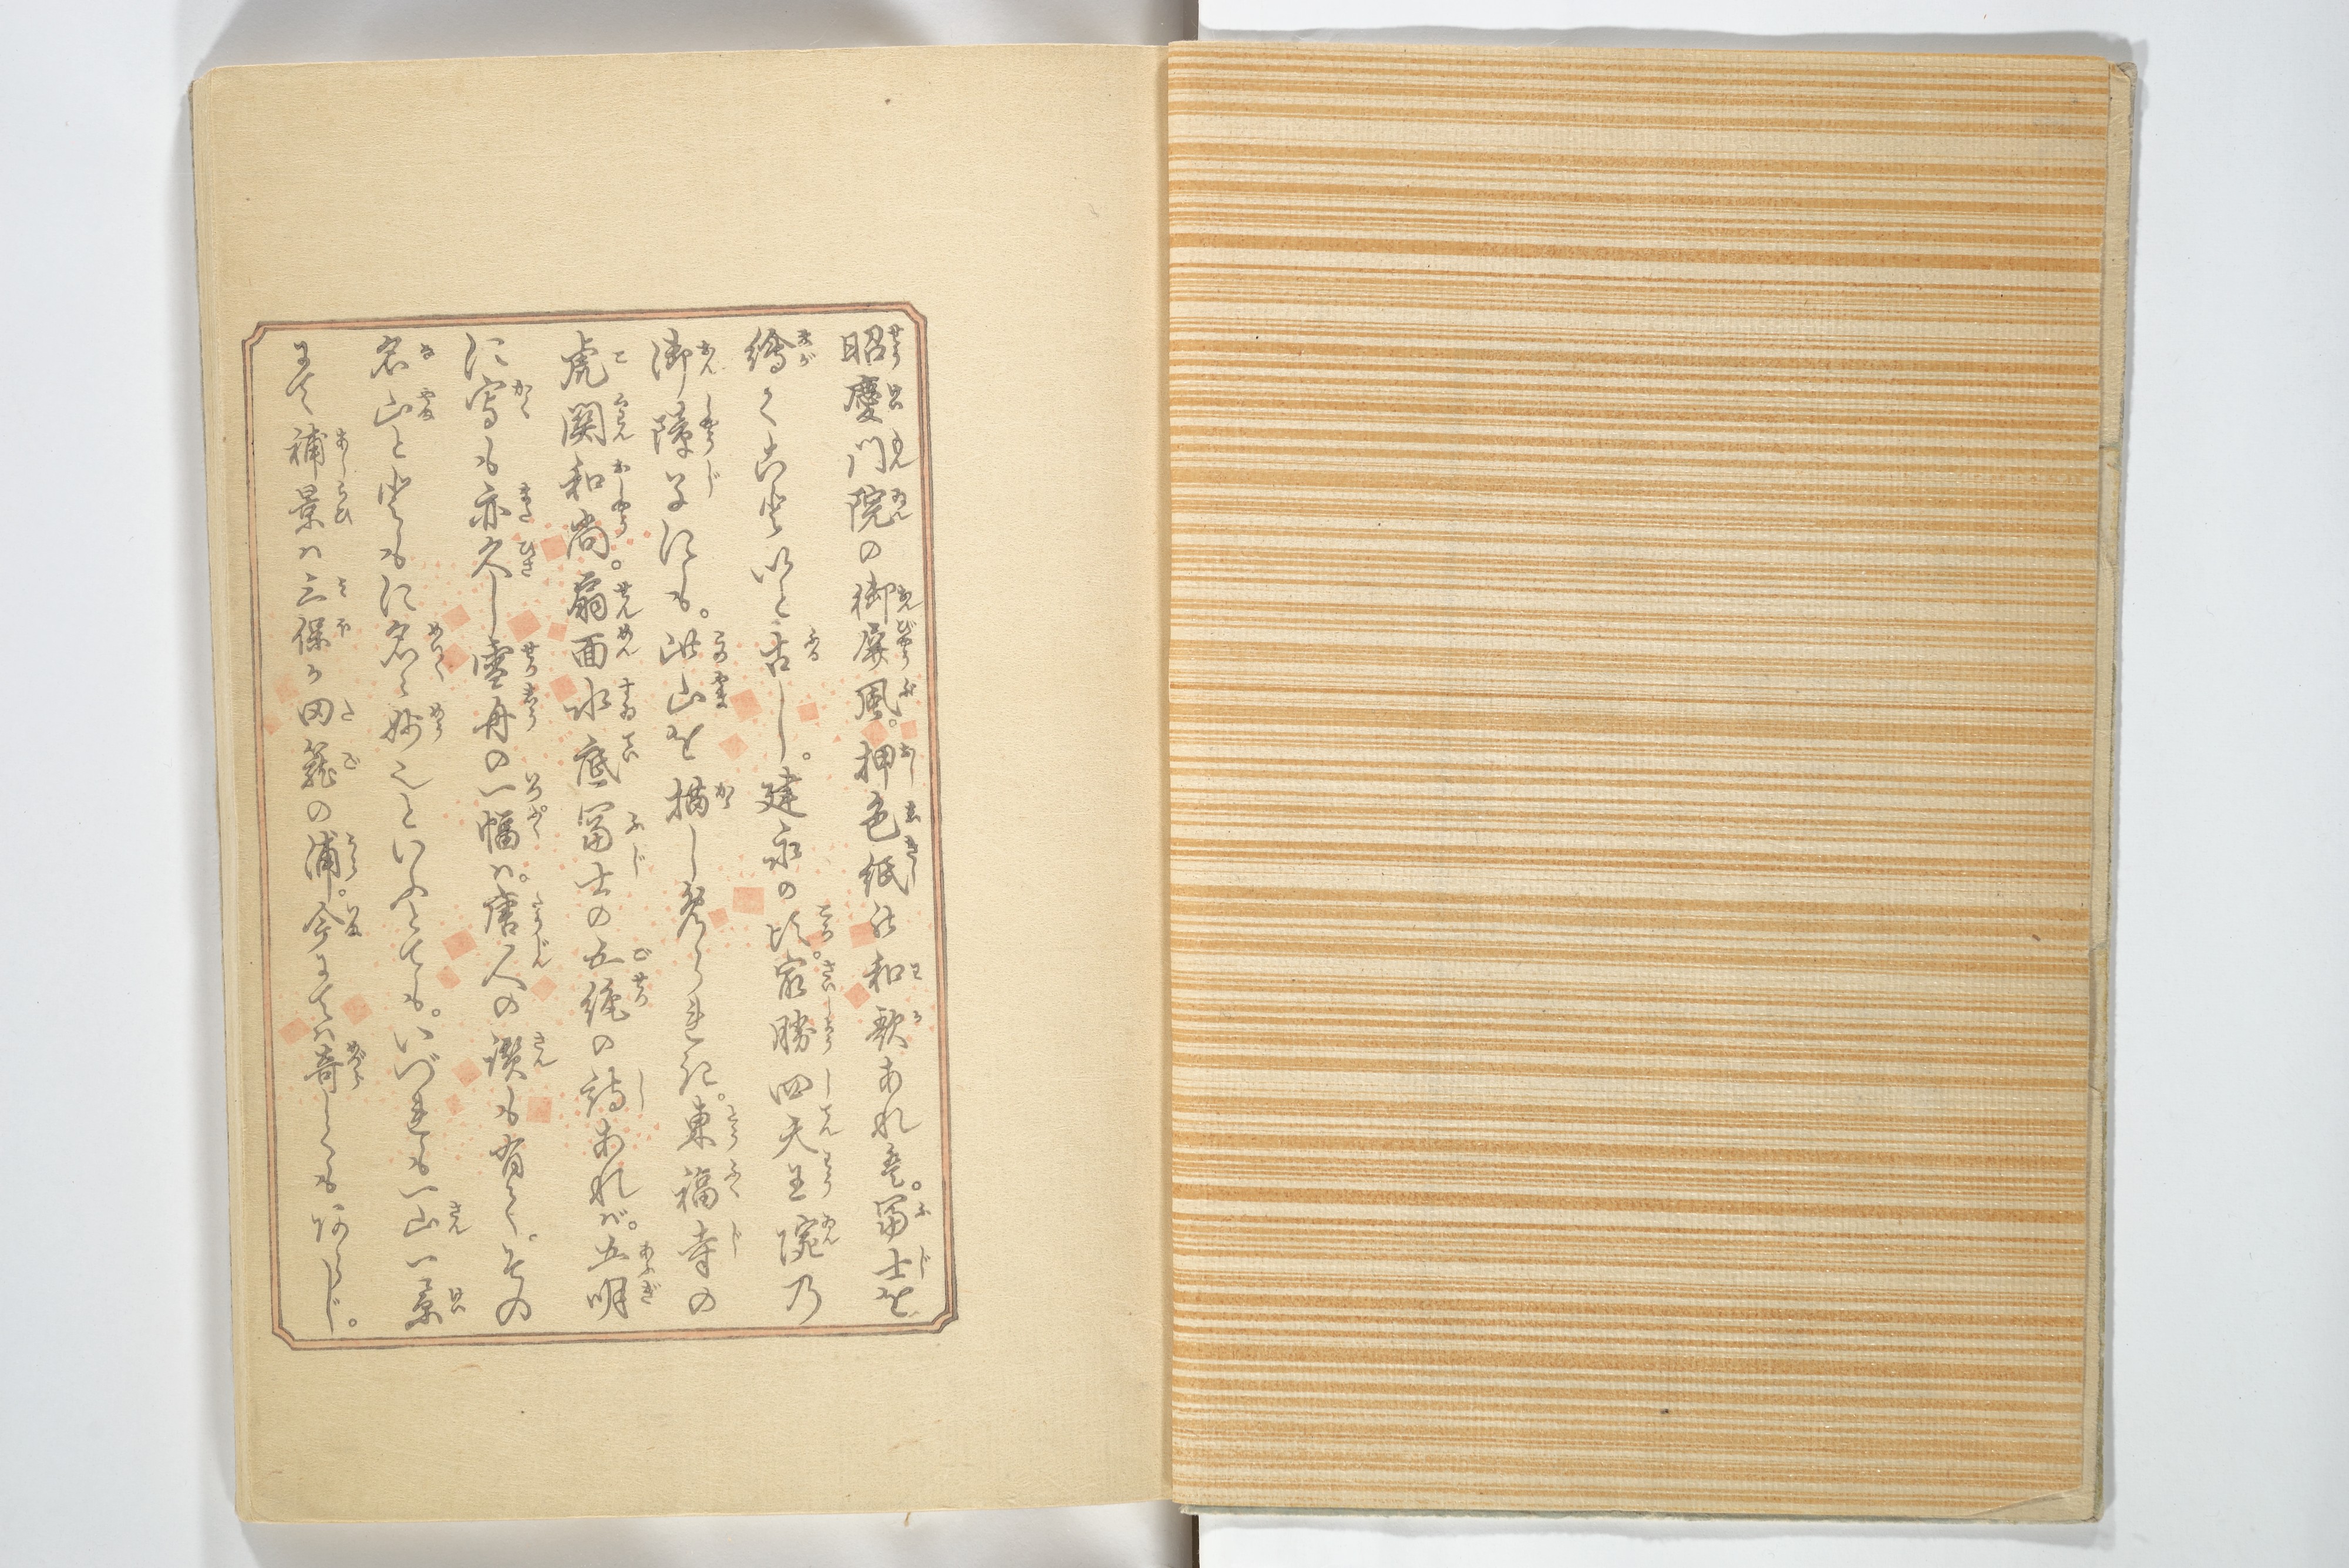 昭慶門院の御屏風。押色紙の和歌あれば。冨士を
繪くこと いと古し。建永の比。最勝四天王院乃
御障子にも。此山を描し Miられき。東福寺の
虎関和尚。扇面水底冨士の五絶の詩あれバ。五明
に寫も亦久し 雪舟の一幅ハ。唐人の讃も有て。その
名山と もに名く妙也といへとも。いづれも一山一景
まて 補景ハ三保が田籠の浦。今までハ奇しくも あらじ。